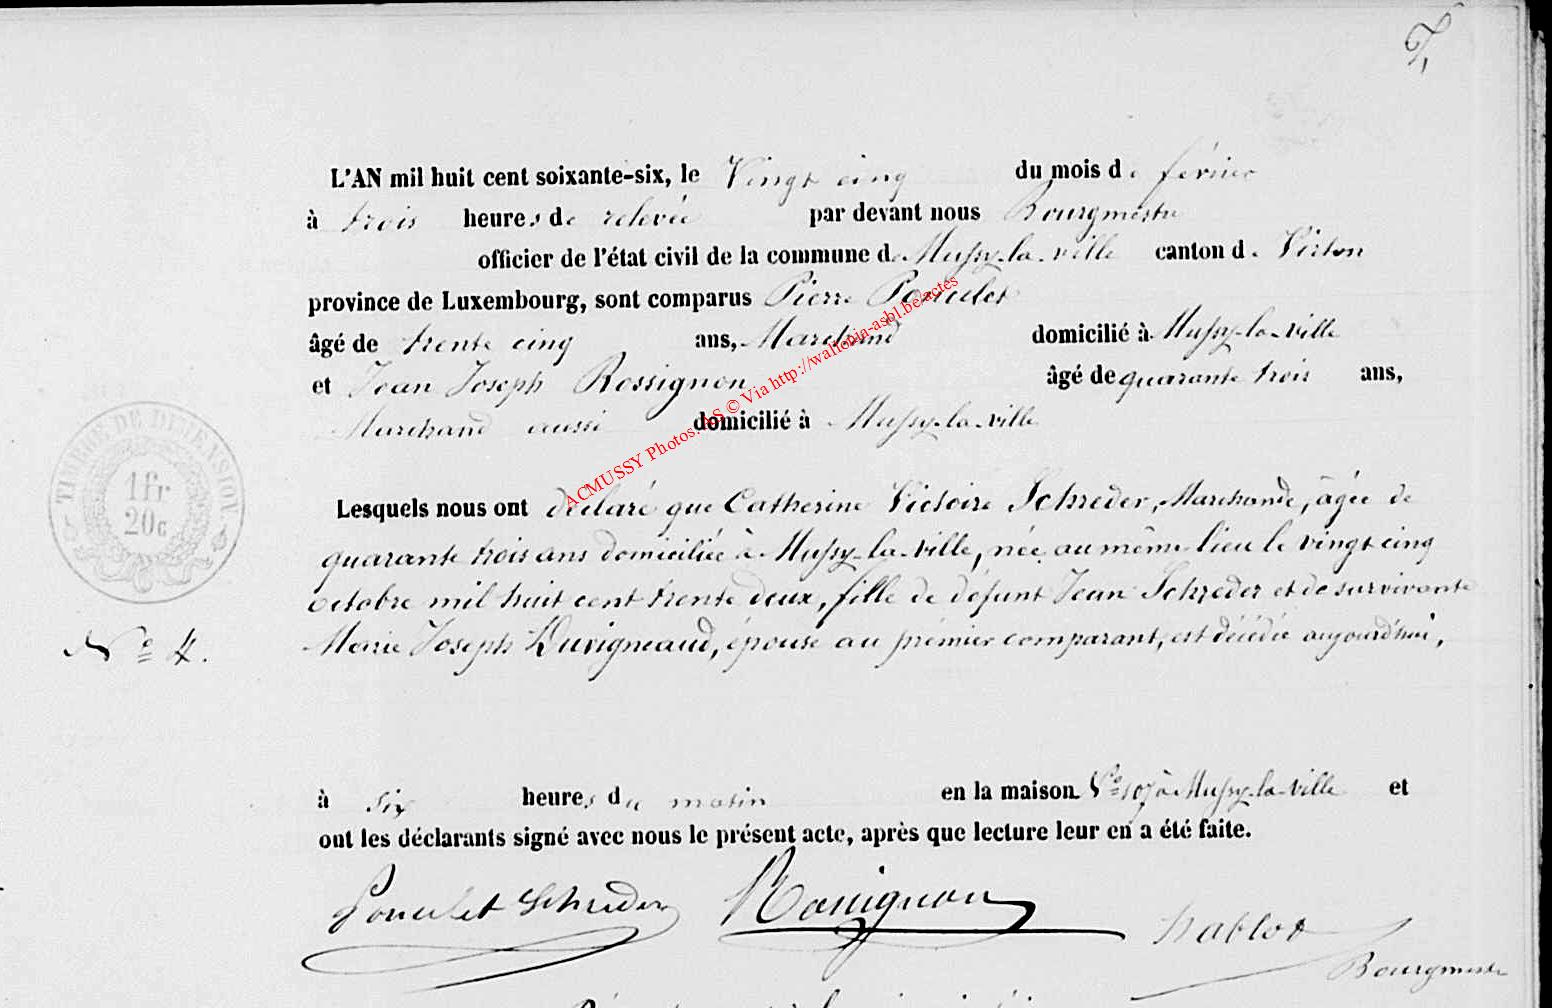 L'AN mil huit cent soixante-six, le Vingt cinq du mois de février
à trois heures de relevée par devant nous Bourgmestre
officier de l'état civil de la commune de Mussy-la-ville canton de Virton
province de Luxembourg, sont comparus Pierre Poncelet
âgé de trente cinq ans, Marchand domicilié à Mussy-la-ville
et Jean Joseph Rossignon âgé de quarante trois ans,
Marchand aussi domicilié à Mussy-la-ville
ACMUSSY Photos: AS © Via http://wallonia-asbl.be/actes
TIMBRE DE DIMENSION
1 fr
20c
Lesquels nous ont déclaré que Catherine Victoire Schreder, Marchande, âgée de
quarante trois ans domiciliée à Mussy-la-ville, née au même lieu le vingt cinq
octobre mil huit cent trente deux, fille de défunt Jean Schreder et de survivante
Marie Joseph Duvigneaud, épouse au prémier comparant, est décédée aujourd'hui,
N° 4.
à six heures du matin en la maison N° 107 à Mussy-la-ville et
ont les déclarants signé avec nous le présent acte, après que lecture leur en a été faite.
Poncelet Schreder Rossignon
Bourgmestre